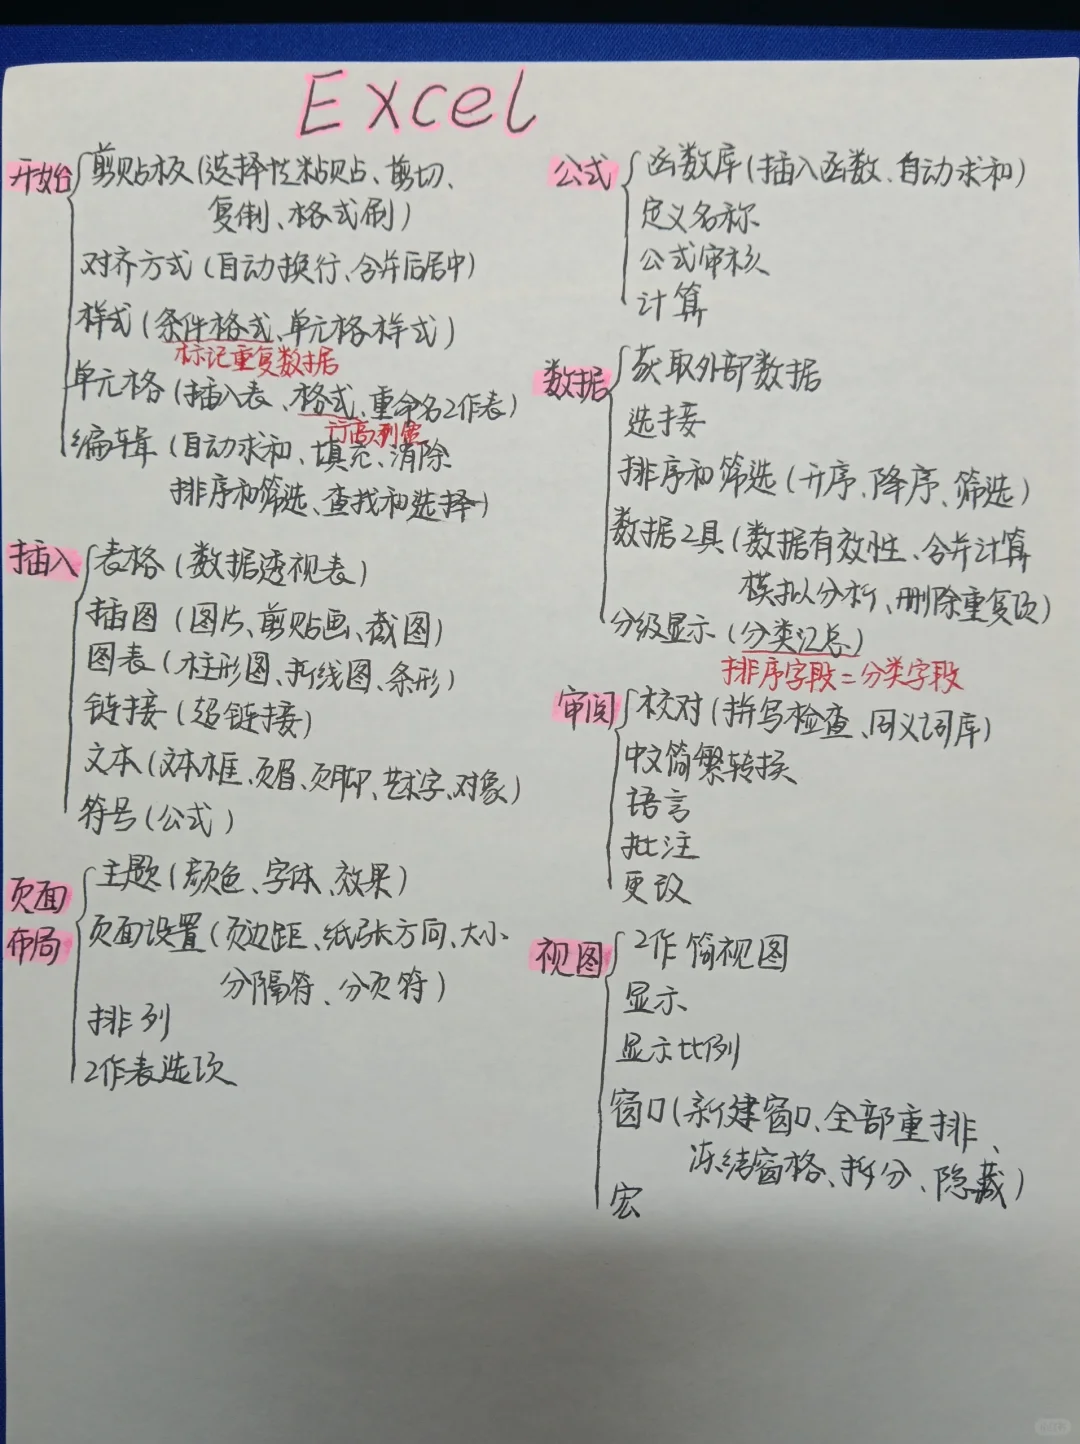 Excel
开始
剪贴板(选择性粘贴、剪切、
复制、格式刷)
对齐方式(自动换行、合并后居中)
样式(条件格式、单元格样式)
标记重复数据
单元格(插入表、格式、重命名工作表)
行高列宽
编辑(自动求和、填充、清除
排序和筛选、查找和选择)
插入
表格(数据透视表)
插图(图片、剪贴画、截图)
图表(柱形图、折线图、条形)
链接(超链接)
文本(文本框、页眉、页脚、艺术字、对象)
符号(公式)
页面
布局
主题(颜色、字体、效果)
页面设置(页边距、纸张方向、大小
分隔符、分页符)
排列
工作表选项
公式
函数库(插入函数、自动求和)
定义名称
公式审核
计算
数据
获取外部数据
选接
排序和筛选(升序、降序、筛选)
数据工具(数据有效性、合并计算
模拟分析、删除重复项)
分级显示(分类汇总)
排序字段=分类字段
审阅
校对(拼写检查、同义词库)
中文简繁转换
语言
批注
更改
视图
工作簿视图
显示
显示比例
窗口(新建窗口、全部重排、
冻结窗格、拆分、隐藏)
宏